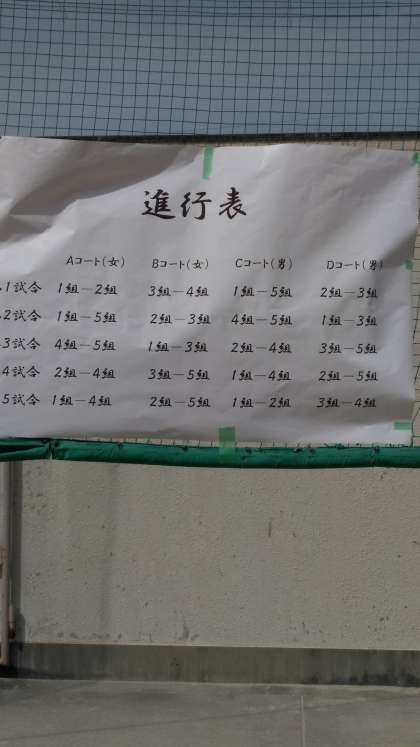 進行表
Aコート(女) Bコート(女) Cコート(男) Dコート(男)
1試合 1組－2組 3組－4組 1組－5組 2組－3組
2試合 1組－5組 2組－3組 4組－5組 1組－3組
3試合 4組－5組 1組－3組 2組－4組 3組－5組
4試合 2組－4組 3組－5組 1組－4組 2組－5組
5試合 1組－4組 2組－5組 1組－2組 3組－4組